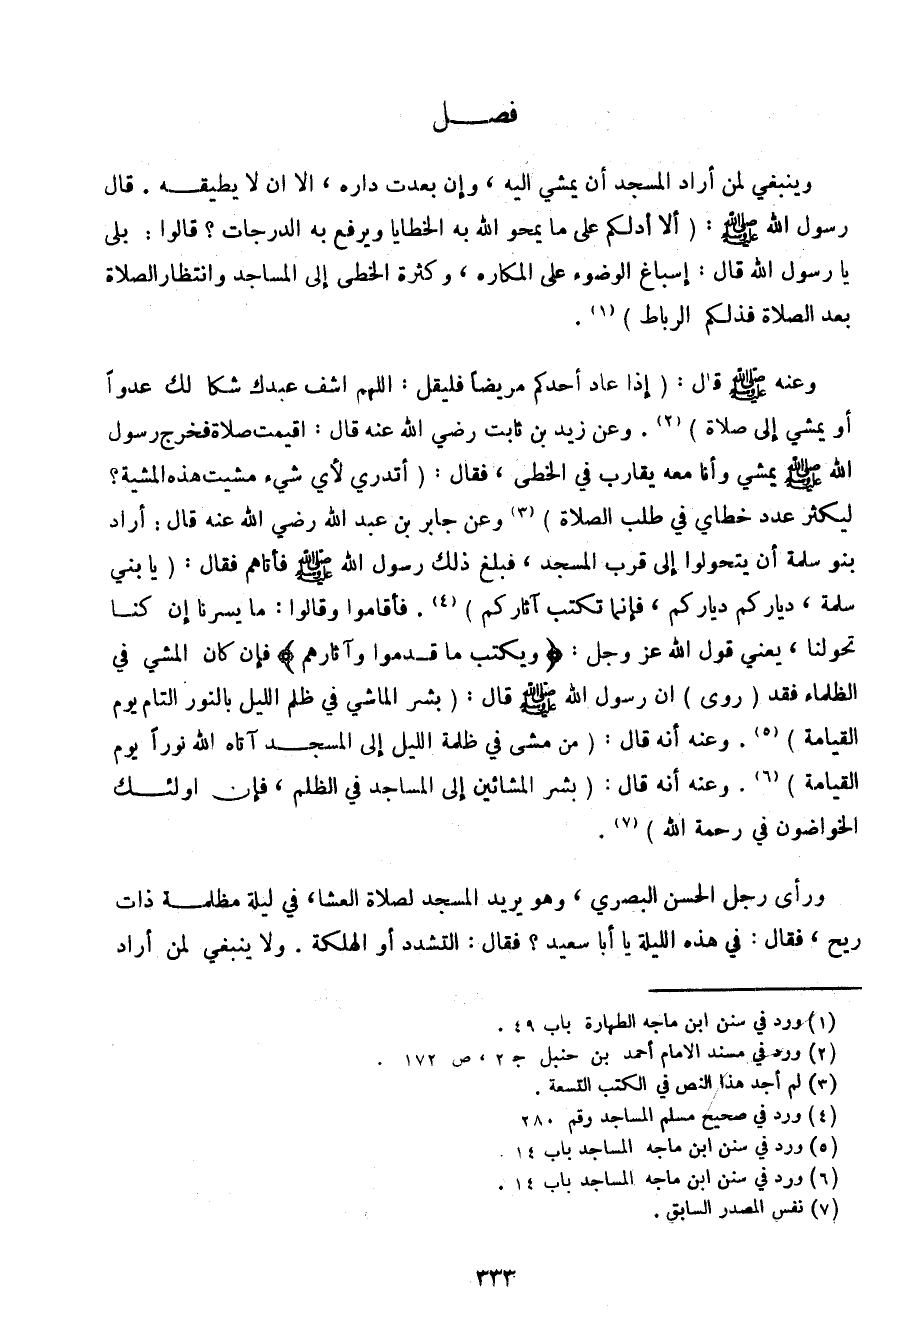 فصـــل
وينبغي لمن أراد المسجد أن يمشي اليه ، وإن بعدت داره ، الا ان لا يطيقـــه . قال
رسول الله ﷺ : ( ألا أدلكم على ما يمحو الله به الخطايا ويرفع به الدرجات ؟ قالوا : بلى
يا رسول الله قال : إسباغ الوضوء على المكاره ، وكثرة الخطى إلى المساجد وانتظار الصلاة
بعد الصلاة فذلكم الرباط ) (١) .
وعنه ﷺ قال : ( إذا عاد أحدكم مريضاً فليقل : اللهم اشف عبدك شكا لك عدواً
أو يمشي إلى صلاة ) (٢) . وعن زيد بن ثابت رضي الله عنه قال : اقيمت صلاة فخرج رسول
الله ﷺ يمشي وأنا معه يقارب في الخطى ، فقال : ( أتدري لأي شيء مشيت هذه المشية ؟
ليكثر عدد خطاي في طلب الصلاة ) (٣) وعن جابر بن عبد الله رضي الله عنه قال : أراد
بنو سلمة أن يتحولوا إلى قرب المسجد ، فبلغ ذلك رسول الله ﷺ فأتاهم فقال : ( يا بني
سلمة ، دياركم دياركم ، فإنما تكتب آثاركم ) (٤) . فأقاموا وقالوا : ما يسرنا إن كنـــا
تحولنا ، يعني قول الله عز وجل : ﴿ ويكتب ما قـدموا وآثارهم ﴾ فإن كان المشي في
الظلماء فقد ( روى ) ان رسول الله ﷺ قال : ( بشر الماشي في ظلم الليل بالنور التام يوم
القيامة ) (٥) . وعنه أنه قال : ( من مشى في ظلمة الليل إلى المسجـــد آتاه الله نوراً يوم
القيامة ) (٦) . وعنه أنه قال : ( بشر المشائين إلى المساجد في الظلم ، فإن اولئـــك
الخواضون في رحمة الله ) (٧) .
ورأى رجل الحسن البصري ، وهو يريد المسجد لصلاة العشاء ، في ليلة مظلمـــة ذات
ريح ، فقال : في هذه الليلة يا أبا سعيد ؟ فقال : التشدد أو الهلكة . ولا ينبغي لمن أراد
(١) ورد في سنن ابن ماجه الطهارة باب ٤٩ .
(٢) ورد في مسند الامام أحمد بن حنبل ج ٢ ، ص ١٧٢ .
(٣) لم أجد هذا النص في الكتب التسعة .
(٤) ورد في صحيح مسلم المساجد رقم ٢٨٠
(٥) ورد في سنن ابن ماجه المساجد باب ١٤ .
(٦) ورد في سنن ابن ماجه المساجد باب ١٤ .
(٧) نفس المصدر السابق .
٣٣٣